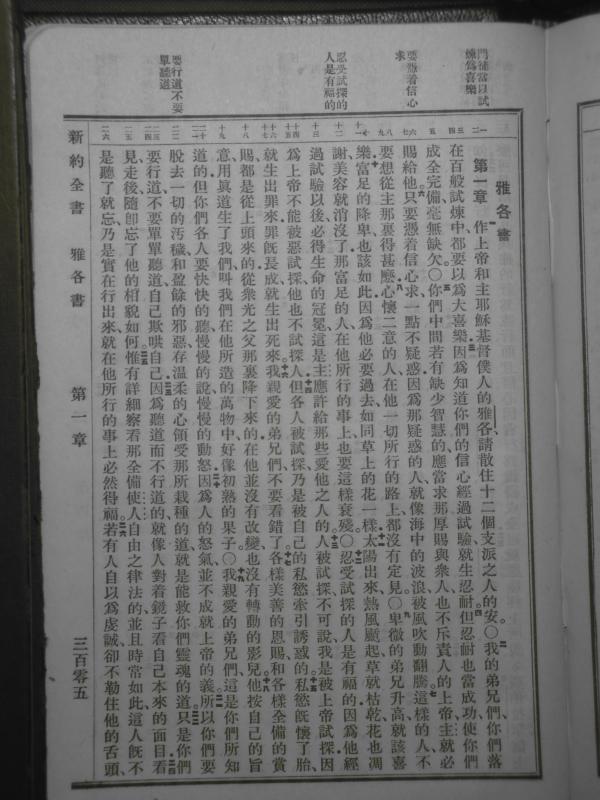 門徒當以試
煉爲喜樂
要憑着信心
求
忍受試探的
人是有福的
要行道不要
單聽道
雅各書
第一章 作上帝和主耶穌基督僕人的雅各請散住十二個支派之人的安〇我的弟兄們你們落
在百般試煉中都要以爲大喜樂因爲知道你們的信心經過試驗就生忍耐但忍耐也當成功使你們
成全完備毫無缺欠〇你們中間若有缺少智慧的應當求那厚賜與衆人也不斥責人的上帝主就必
賜給他只要憑着信心求一點不疑惑因爲那疑惑的人就像海中的波浪被風吹動翻騰這樣的人不
要想從主那裏得甚麽心懷二意的人在他一切所行的路上都沒有定見〇卑微的弟兄升高就該喜
樂富足的降卑也該如此因爲他必要過去如同草上的花一樣太陽出來熱風颳起草就枯乾花也凋
謝美容就消沒了那富足的人在他所行的事上也要這樣衰殘〇忍受試探的人是有福的因爲他經
過試驗以後必得生命的冠冕這是主應許給那些愛他之人的人被試探不可說我是被上帝試探因
爲上帝不能被惡試探他也不試探人但各人被試探乃是被自己的私慾牽引誘惑的私慾旣懷了胎
就生出罪來罪旣長成就生出死來我親愛的弟兄們不要看錯了各樣美善的恩賜和各樣全備的賞
賜都是從上頭來的從衆光之父那裏降下來的在他並沒有改變也沒有轉動的影兒他按自己的旨
意用眞道生了我們叫我們在他所造的萬物中好像初熟的果子〇我親愛的弟兄們這是你們所知
道的但你們各人要快快的聽慢慢的說慢慢的動怒因爲人的怒氣並不成就上帝的義所以你們要
脫去一切的汚穢和盈餘的邪惡存溫柔的心領受那所栽種的道就是能救你們靈魂的道只是你們
要行道不要單單聽道自己欺哄自己因爲聽道而不行道的就像人對着鏡子看自己本來的面目看
見走後隨卽忘了他的相貌如何惟有詳細察看那全備使人自由之律法的並且時常如此這人旣不
是聽了就忘乃是實在行出來就在他所行的事上必然得福若有人自以爲虔誠卻不勒住他的舌頭
新約全書 雅各書 第一章 三百零五